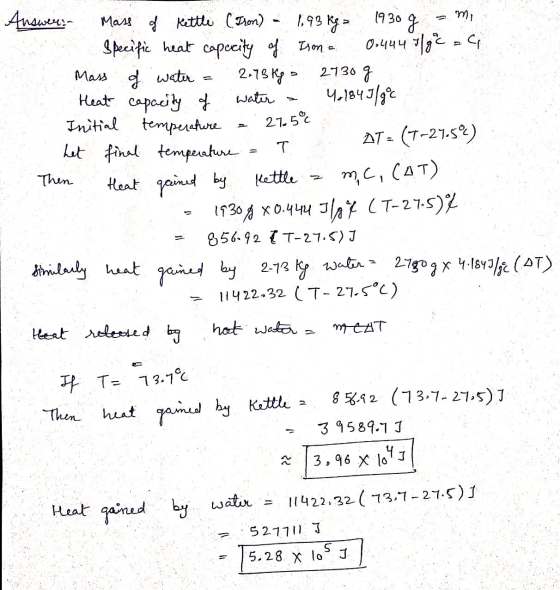 Answer:- Mass of kettle (Iron) - 1.93 Kg = 1930 g = m₁
Specific heat capacity of Iron = 0.444 J/g°C = C₁
Mass of water = 2.73 Kg = 2730 g
Heat capacity of water = 4.184 J/g°C
Initial temperature = 27.5°C
Let final temperature = T ΔT = (T-27.5°C)
Then Heat gained by kettle = m₁C₁ (ΔT)
= 1930 g × 0.444 J/g°C (T-27.5)°C
= 856.92 (T-27.5) J
Similarly heat gained by 2.73 Kg water = 2730 g × 4.184 J/g°C (ΔT)
= 11422.32 (T-27.5°C)
Heat released by hot water = mCΔT
If T = 73.7°C
Then heat gained by Kettle = 856.92 (73.7-27.5) J
= 39589.7 J
≈ 3.96 × 10⁴ J
Heat gained by water = 11422.32 (73.7-27.5) J
= 527711 J
= 5.28 × 10⁵ J